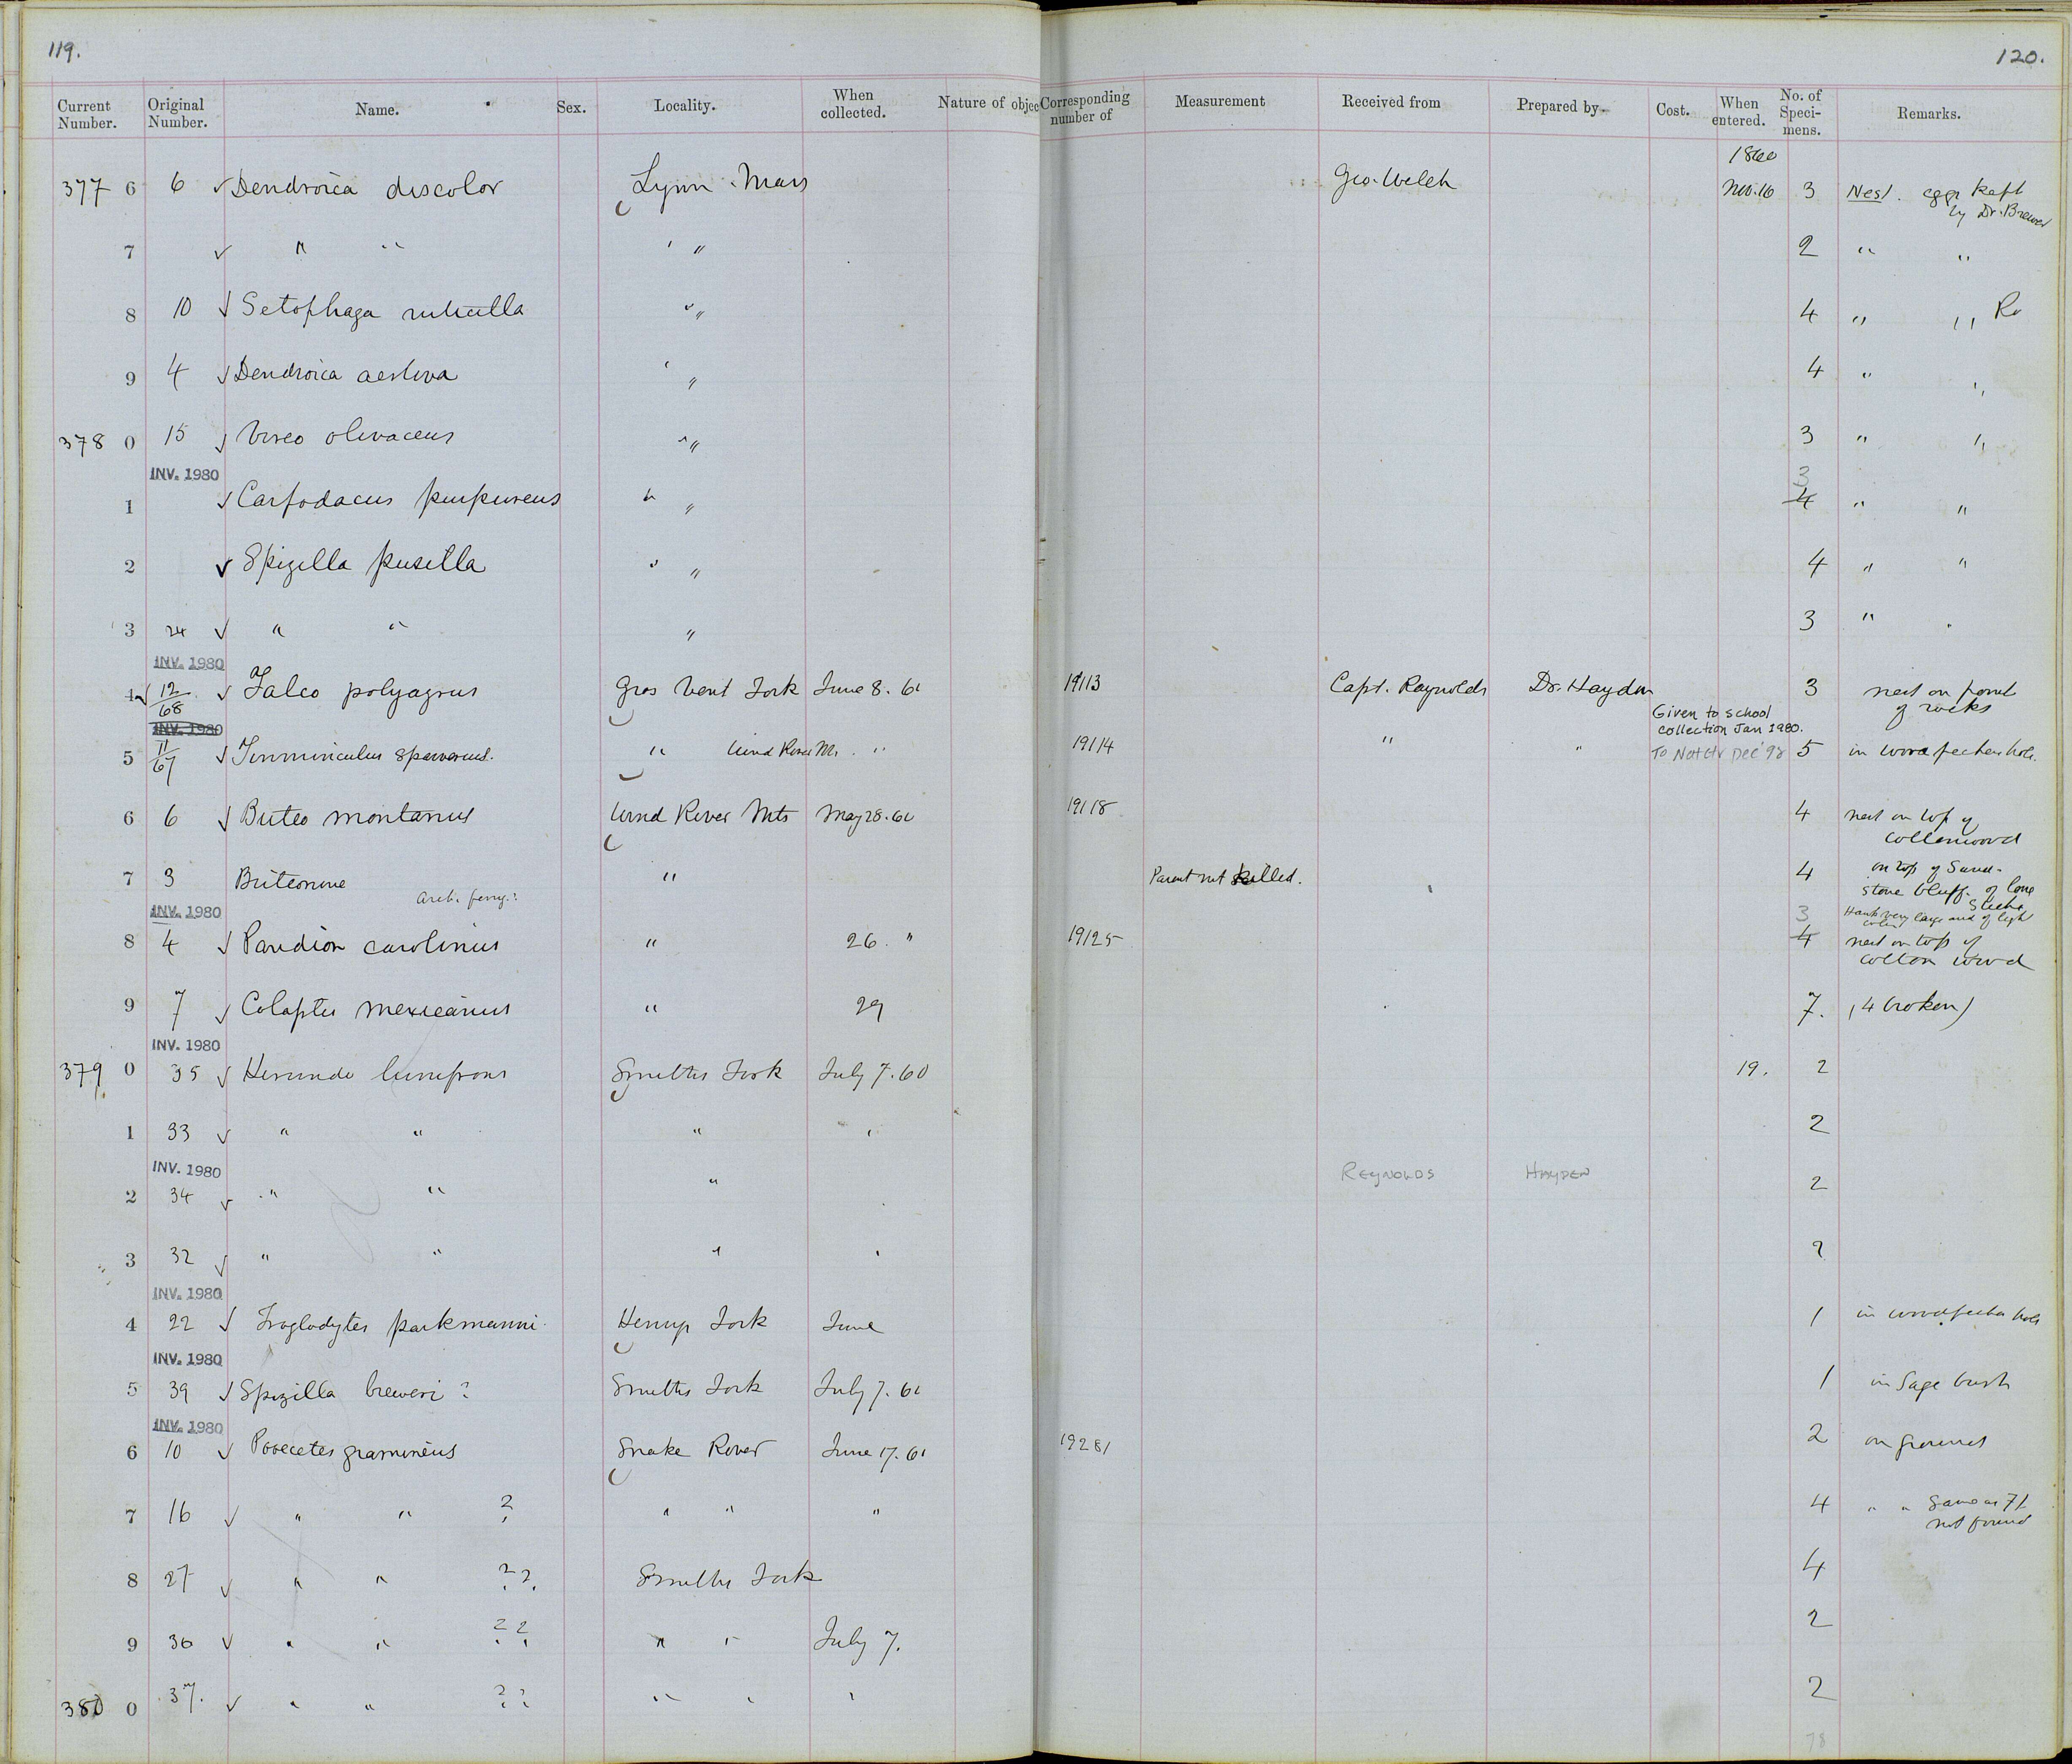 119.
120.
Current Number. Original Number. Name. Sex. Locality. When collected. Nature of objec Corresponding number of Measurement Received from Prepared by. Cost. When entered. No. of Speci-mens. Remarks.
1860
377 6 6 ✓ Dendroica discolor Lynn Mass Geo. Welch Nov. 16 3 Nest. eggs kept
by Dr. Brewer
7 ✓ " " " 2 " "
8 10 ✓ Setophaga ruticilla " 4 " "
9 4 ✓ Dendroica aestiva " 4 " "
378 0 15 ✓ Vireo olivaceus " 3 " "
INV. 1980 3
1 ✓ Carpodacus purpureus " 4 " "
2 ✓ Spizella pusilla " 4 " "
3 24 ✓ " " " 3 "
INV. 1980
4 ✓ 12/68 ✓ Falco polyagrus Gros Vent Fork June 8. 60 19113 Capt. Raynolds Dr. Hayden 3 nest on point
of rocks
INV. 1980 Given to school
collection Jan 1980.
5 11/67 ✓ Tinnunculus sparverius. " Wind River Mts. " 19114 " " To Nat Hr Dec '92 5 in woodpeckers hole.
6 6 ✓ Buteo montanus Wind River Mts May 28. 60 19118 4 nest on top of
cottonwood
7 3 Buteonine " Parent not killed. 4 on top of Sand-
Arch. ferrug.? stone bluff. of Lone
INV. 1980 3 Hawk very large and of light
8 4 ✓ Pandion carolinus " 26. " 19125 4 nest on top of
cotton wood
9 7 ✓ Colaptes mexicanus " 29 7. (4 broken)
INV. 1980
379 0 35 ✓ Hirundo lunifrons Smiths Fork July 7. 60 19. 2
1 33 ✓ " " " " 2
INV. 1980 REYNOLDS HAYDEN
2 34 ✓ " " " 2
3 32 ✓ " " " " 2
INV. 1980
4 22 ✓ Troglodytes parkmanni Henrys Fork June 1 in woodpecker hole
INV. 1980
5 39 ✓ Spizella breweri ? Smiths Fork July 7. 60 1 in Sage bush
INV. 1980
6 10 ✓ Pooecetes gramineus Snake River June 17. 60 19281 2 on ground
7 16 ✓ " " ? " " " 4 " " Same as 71
not found
8 27 ✓ " " ?? Smiths Fork 4
9 36 ✓ " " ?? " " July 7. 2
380 0 37. ✓ " " ?? " " " 2
78